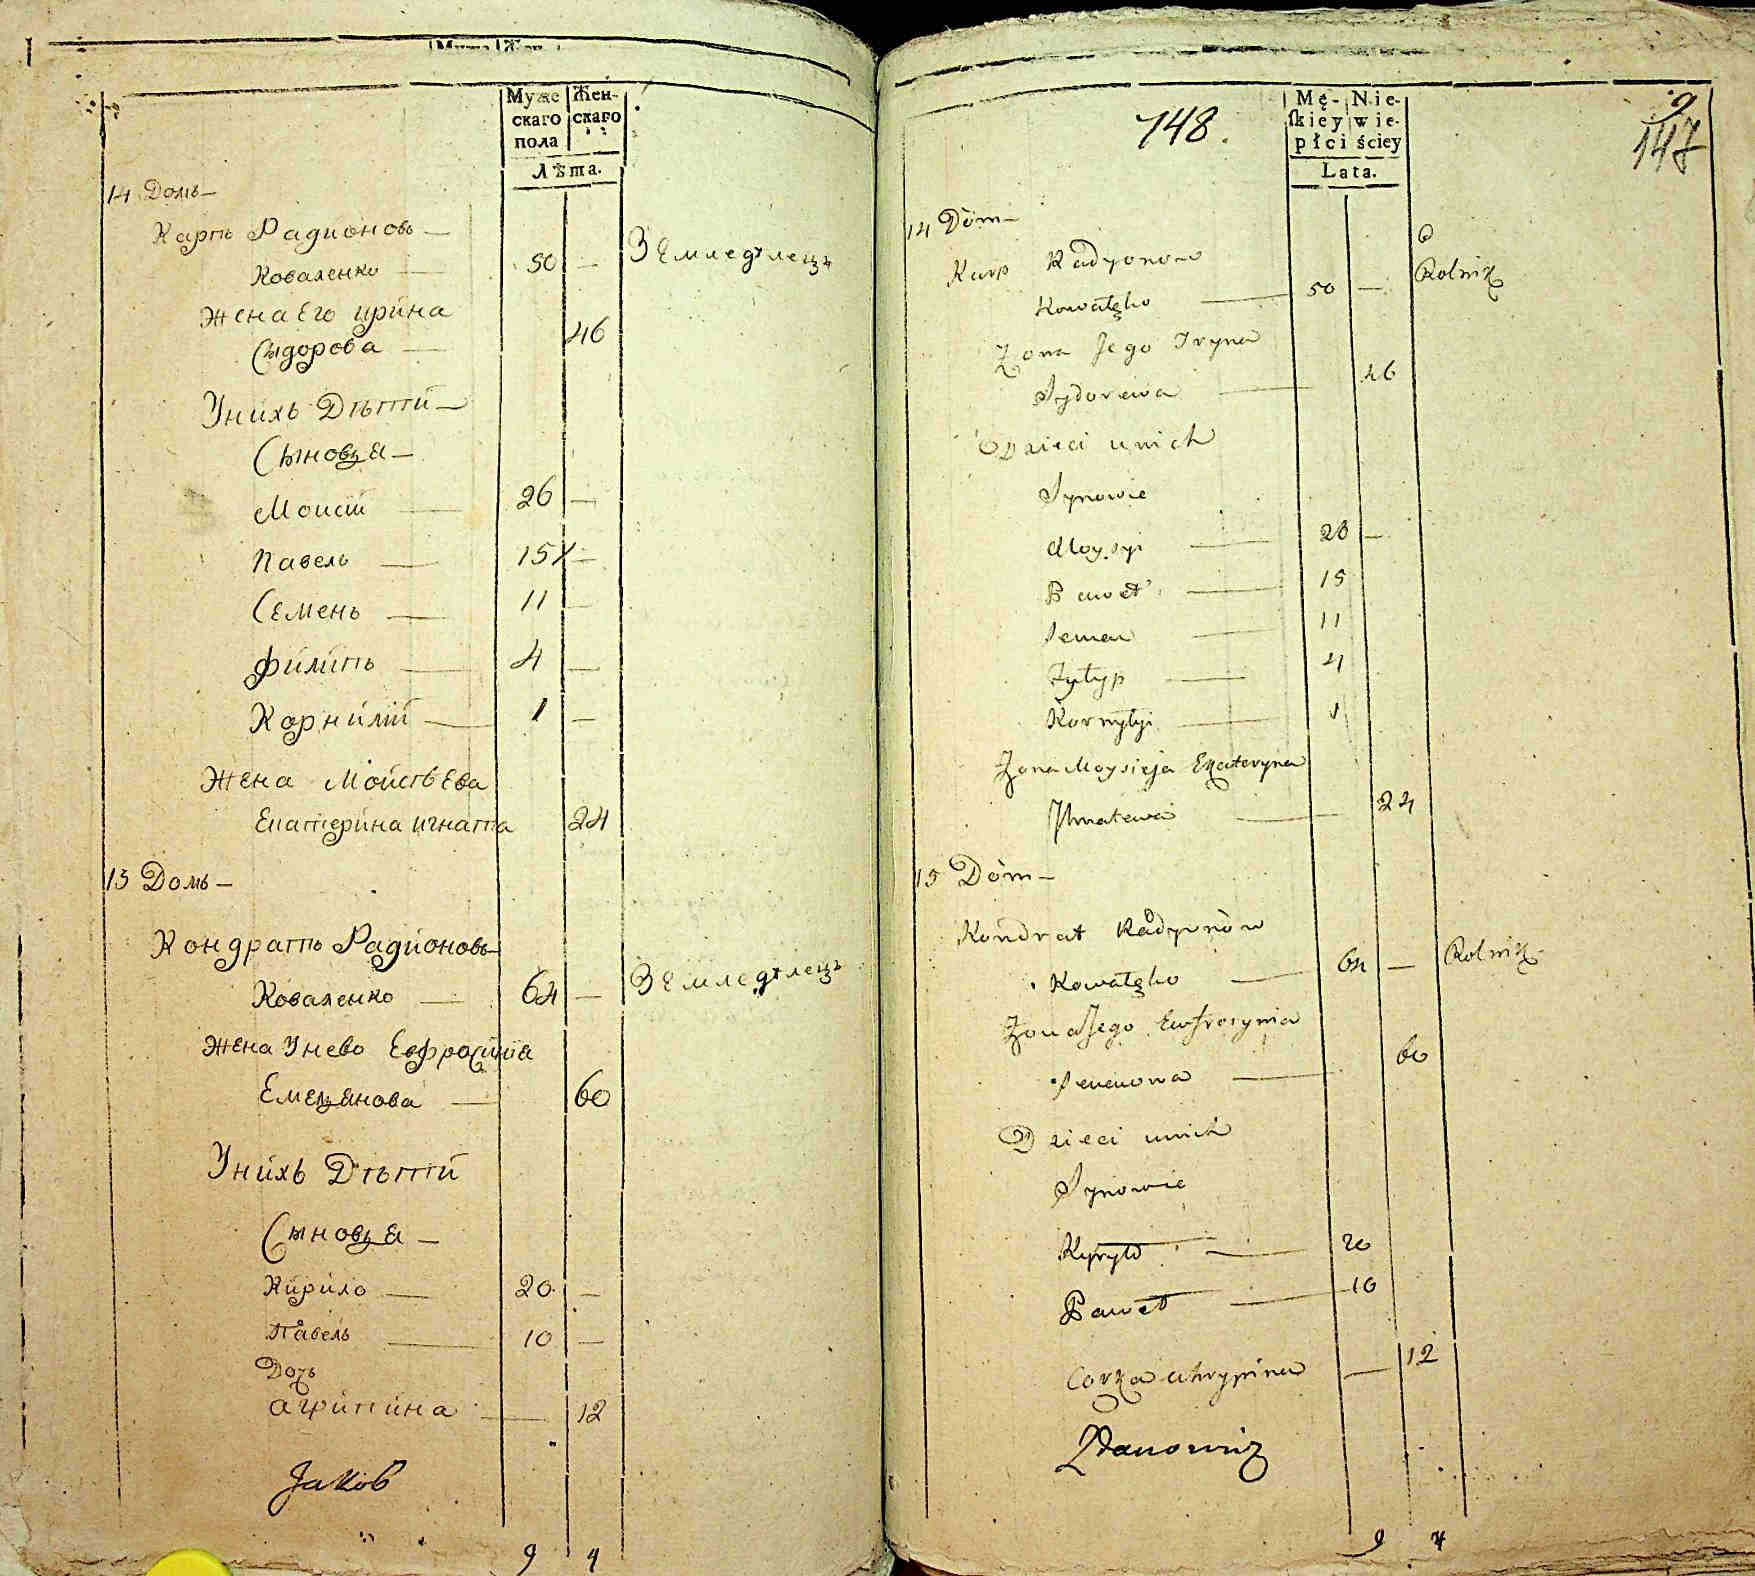 Муже
скаго
пола
Жен-
скаго
Лѣта.
14 Домъ —
Карпъ Радионовъ —
Коваленко — 50 — Земледѣлецъ
Жена Его ирина
Сыдорова — 46
Унихъ Дѣти —
Сыновья —
Моисій — 26 —
Павелъ — 15 —
Семенъ — 11 —
филипъ — 4 —
Корнилій — 1 —
Жена Мойсѣева
Екатерина игната 24
15 Домъ —
Кондратъ Радионовъ
Коваленко — 64 — Земледѣлецъ
Жена Унево Евфросинія
Емельянова — 60
Унихъ Дѣти
Сыновья —
Кирило — 20 —
Павелъ — 10 —
Дочь
агрипина — 12
Jakob
9 4
148.
Mę-
skiey
płci
Nie-
wie-
ściey
Lata.
9
147
14 Dóm —
Karp Radyonow
Kowalęko — 50 — Rolnik
Żona Jego Iryna
Sydorewa — 46
Dzieci unich
Synowie
Moysyi — 26 —
Paweł — 15
Semen — 11
Fyłyp — 4
Kornyłyi — 1
Żona Moysieja Ekateryna
Ihnatewa — 24
15 Dóm —
Kondrat Radyonów
Kowalęko — 64 — Rolnik
Żona Jego Ewfrosynia
60
Dzieci unich
Synowie
Kyryło — 20
Paweł — 10
Corka ahrypina — 12
Zdanowicz
9 4